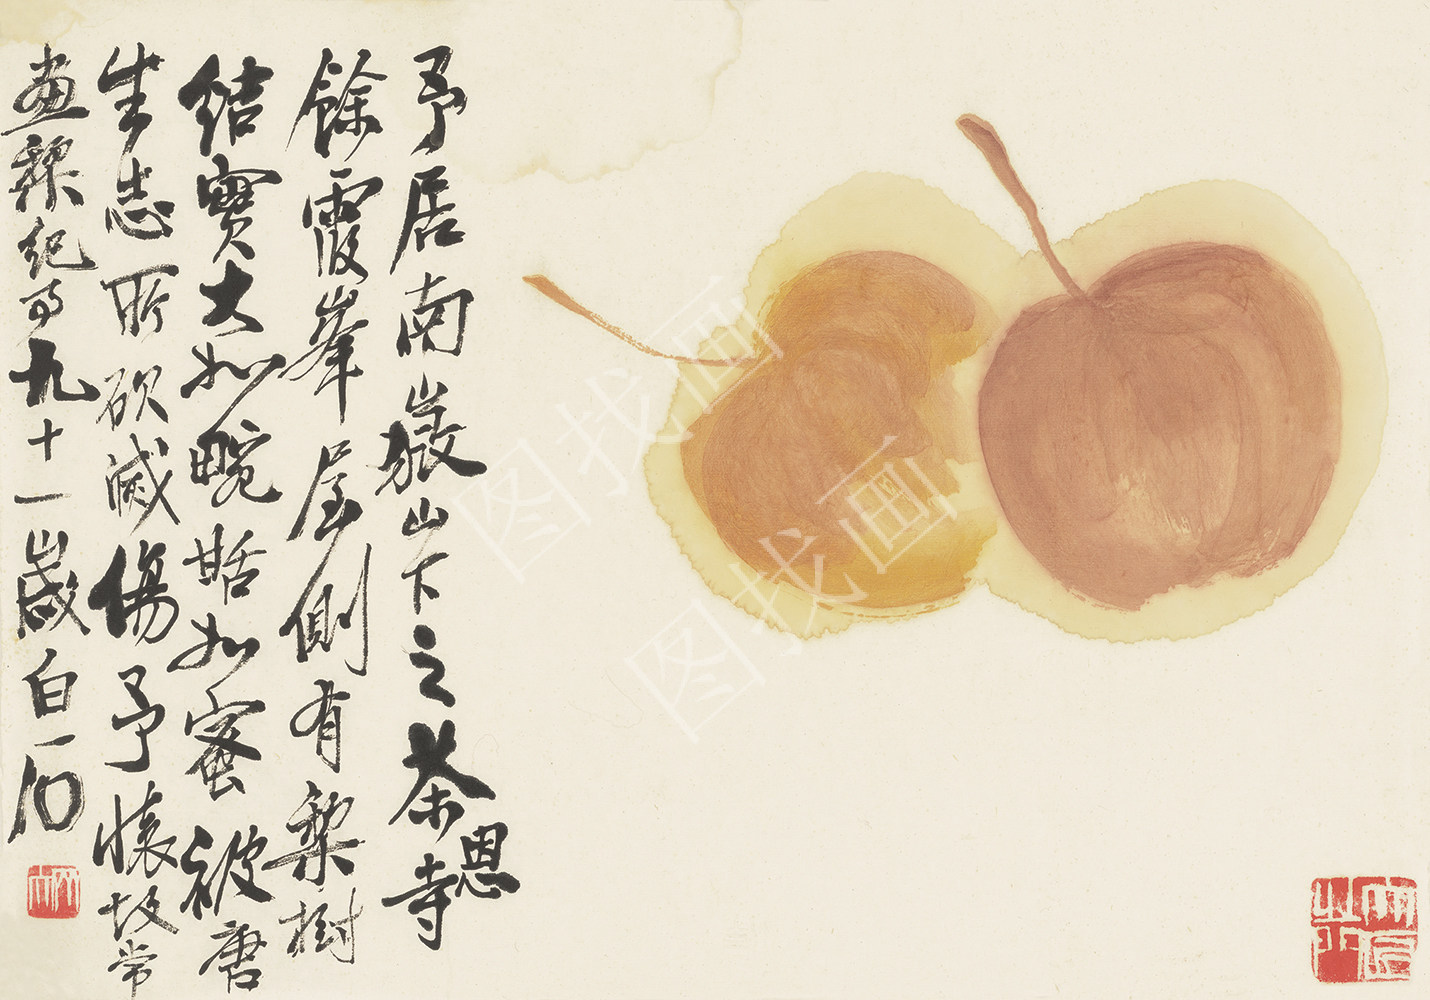 予居南嶽山下之茶恩寺
餘霞峯屋側有棃樹
結實大如畹甜如蜜被唐
生志所砍滅傷予懷故常
畫棃紀事九十一歲白石
图找画
图找画